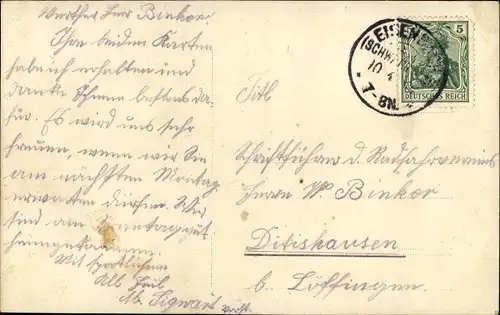 Werther Herr Binker.
Ihre beiden Karten
habe ich erhalten und
danke Ihnen bestens da-
für. Es wird uns sehr
freuen, wenn wir Sie
am nächsten Montag
erwarten dürfen. Wir
sind am Sonntag gut
heimgekommen.
Mit sportlichem
All Heil
M. Sigwart
EISENB
SCHW
10 4
7-8N.
5
DEUTSCHES REICH
Titl
Schriftführer d. Radfahrervereins
Herrn W. Binker
Ditishausen
b. Löffingen